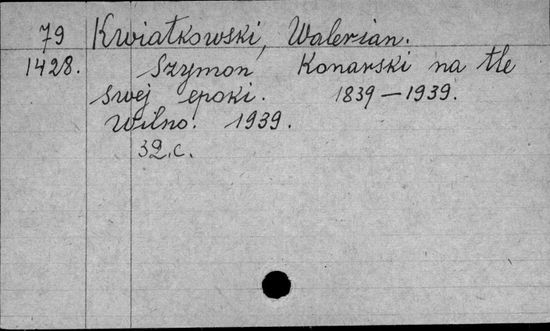 79 Kwiatkowski, Walerian.
1428. Szymon Konarski na tle
swej epoki. 1839–1939.
Wilno. 1939.
32.c.